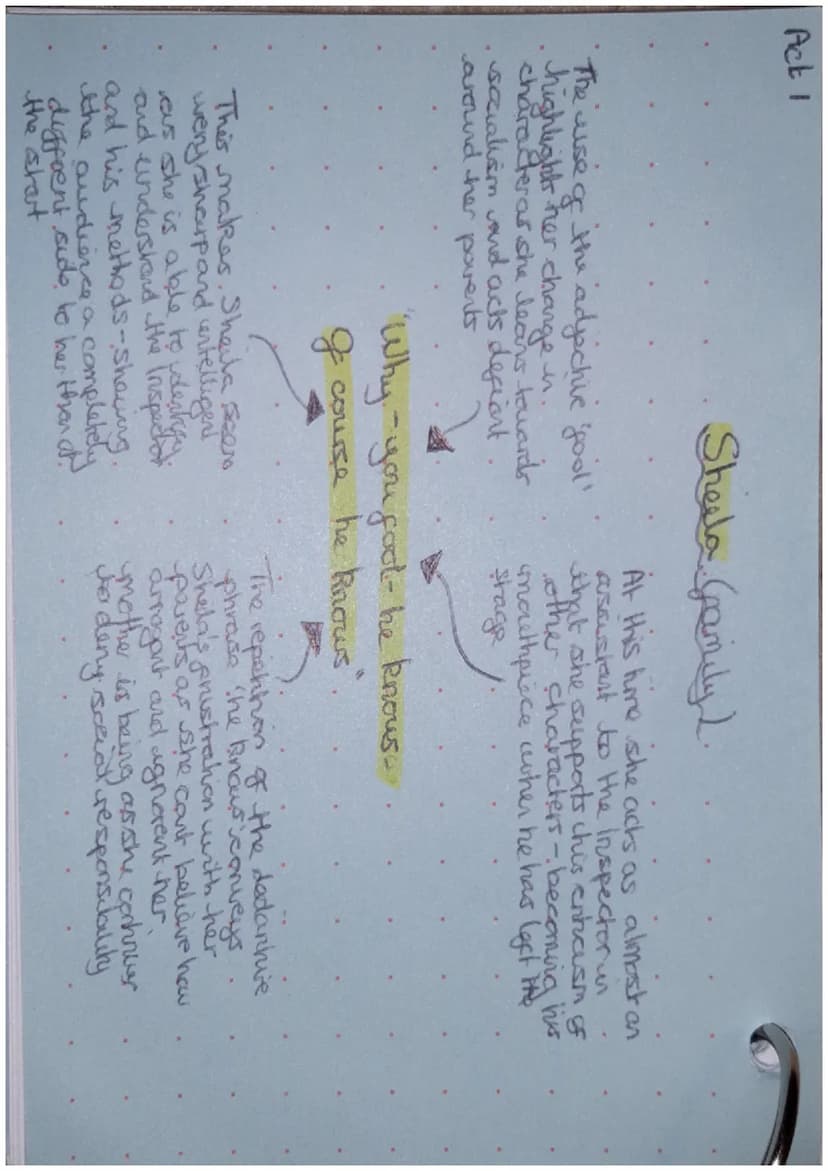 Act 1
Sheila (family)
The use of the adjective 'fool'
highlights her change in
character as she leans towards
socialism and acts defiant
around her parents
At this time she acts as almost an
assistant to the Inspector in
that she supports his criticism of
other characters - becoming his
mouthpiece when he has left the
stage
"Why - you fool - he knows.
Of course he knows"
This makes Sheila seem
very sharp and intelligent
as she is able to identify
and understand the Inspector
and his methods - showing
the audience a completely
different side to her than at
the start
The repetition of the declarative
phrase 'he knows' conveys
Sheila's frustration with her
parents as she cant believe how
arrogant and ignorant her
mother is being as she continues
to deny social responsibility